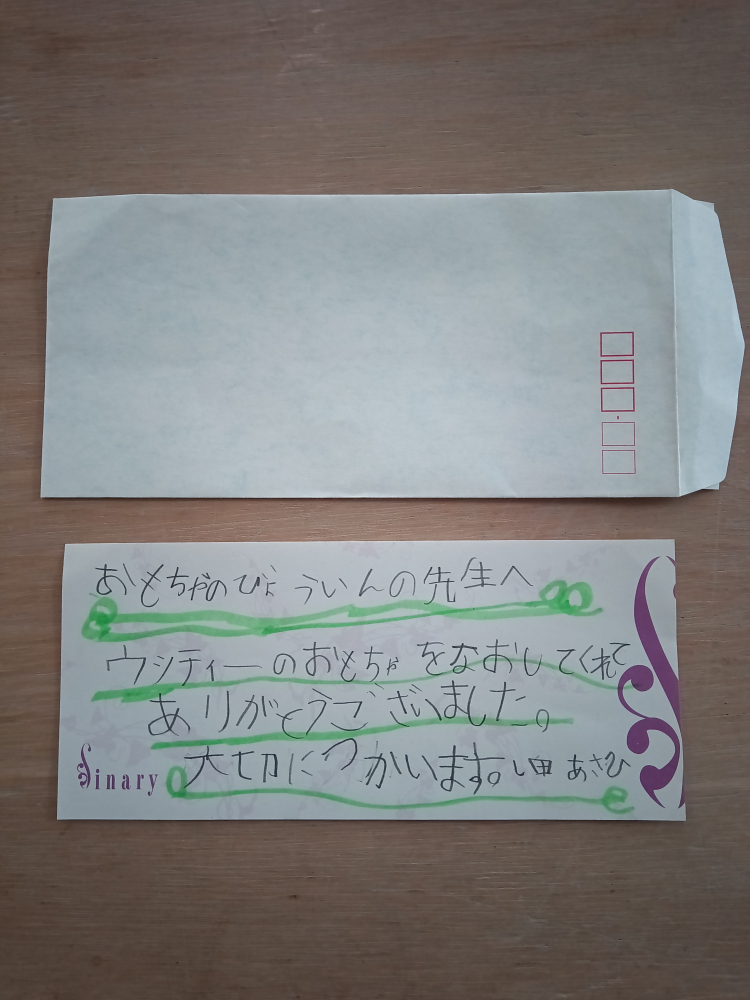 おもちゃのびょういんの先生へ
ウッティーのおもちゃをなおしてくれて
ありがとうございました。
大切につかいます。 あさひ
Sinary